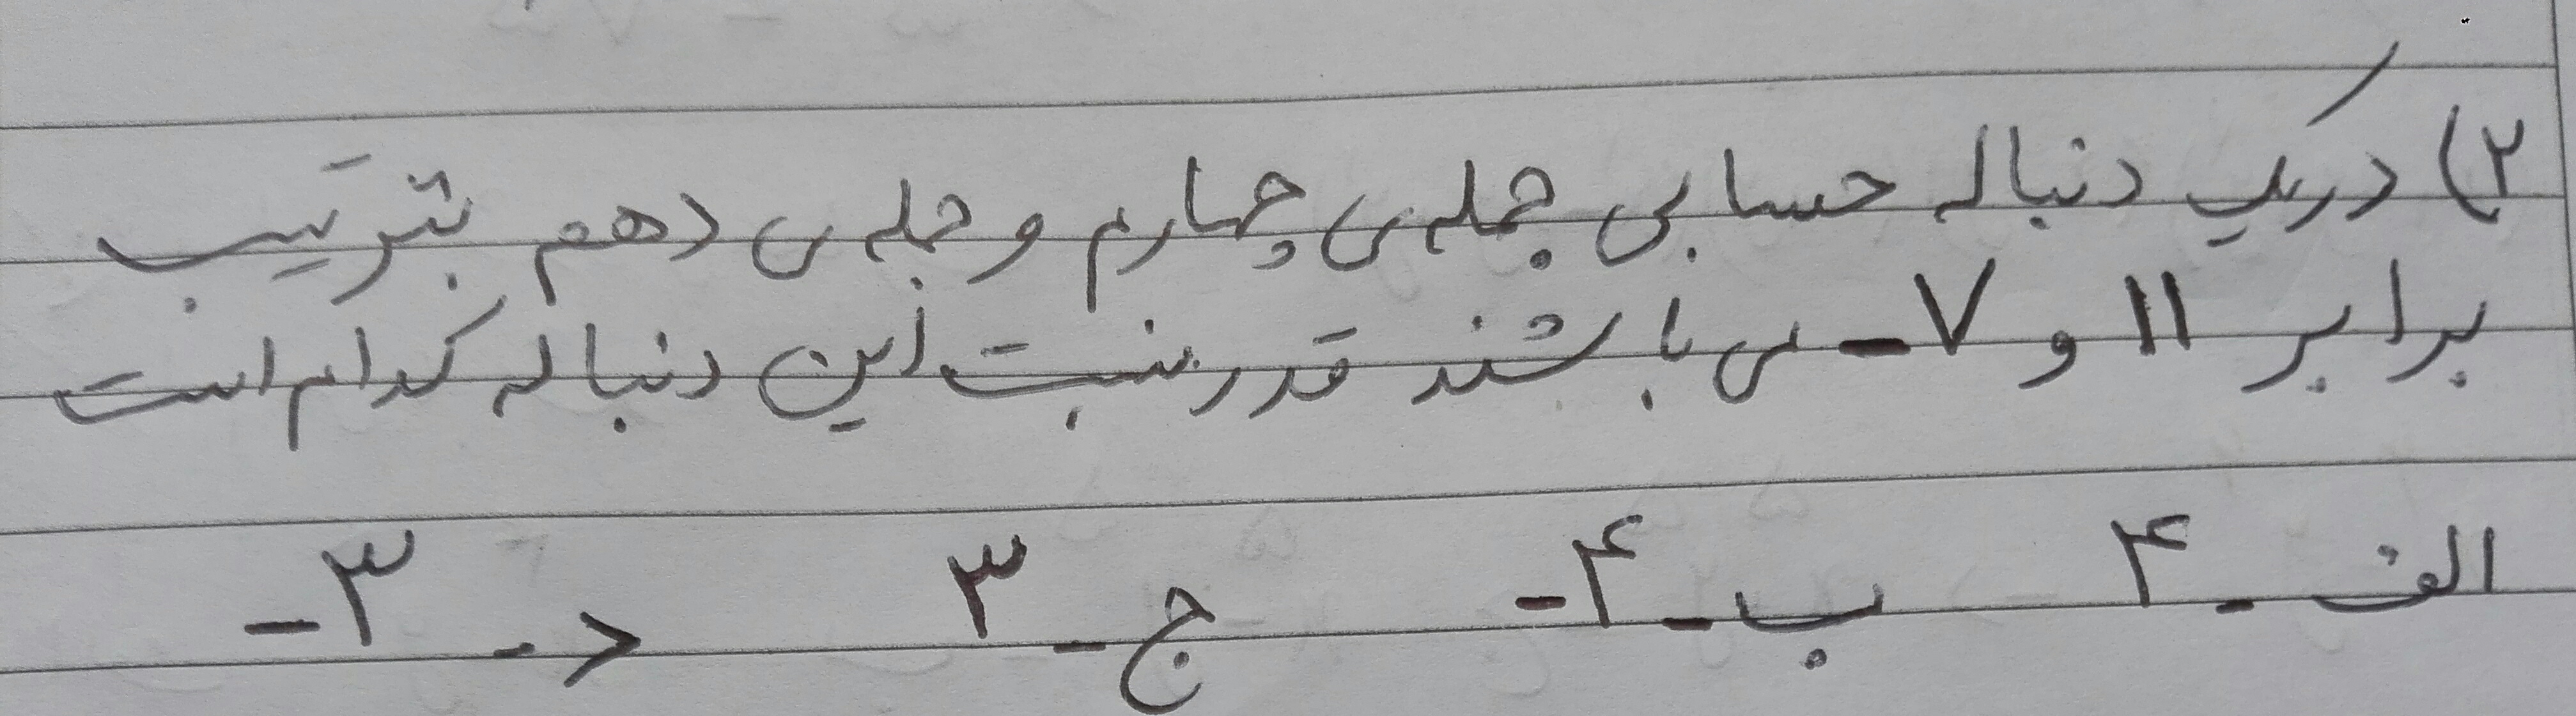 ۲) در یک دنباله حسابی جمله ی چهارم و جمله ی دهم بترتیب
برابر ۱۱ و ۷- می باشند قدر نسبت این دنباله کدام است
الف - ۴ ب - ۴- ج - ۳ د - ۳-